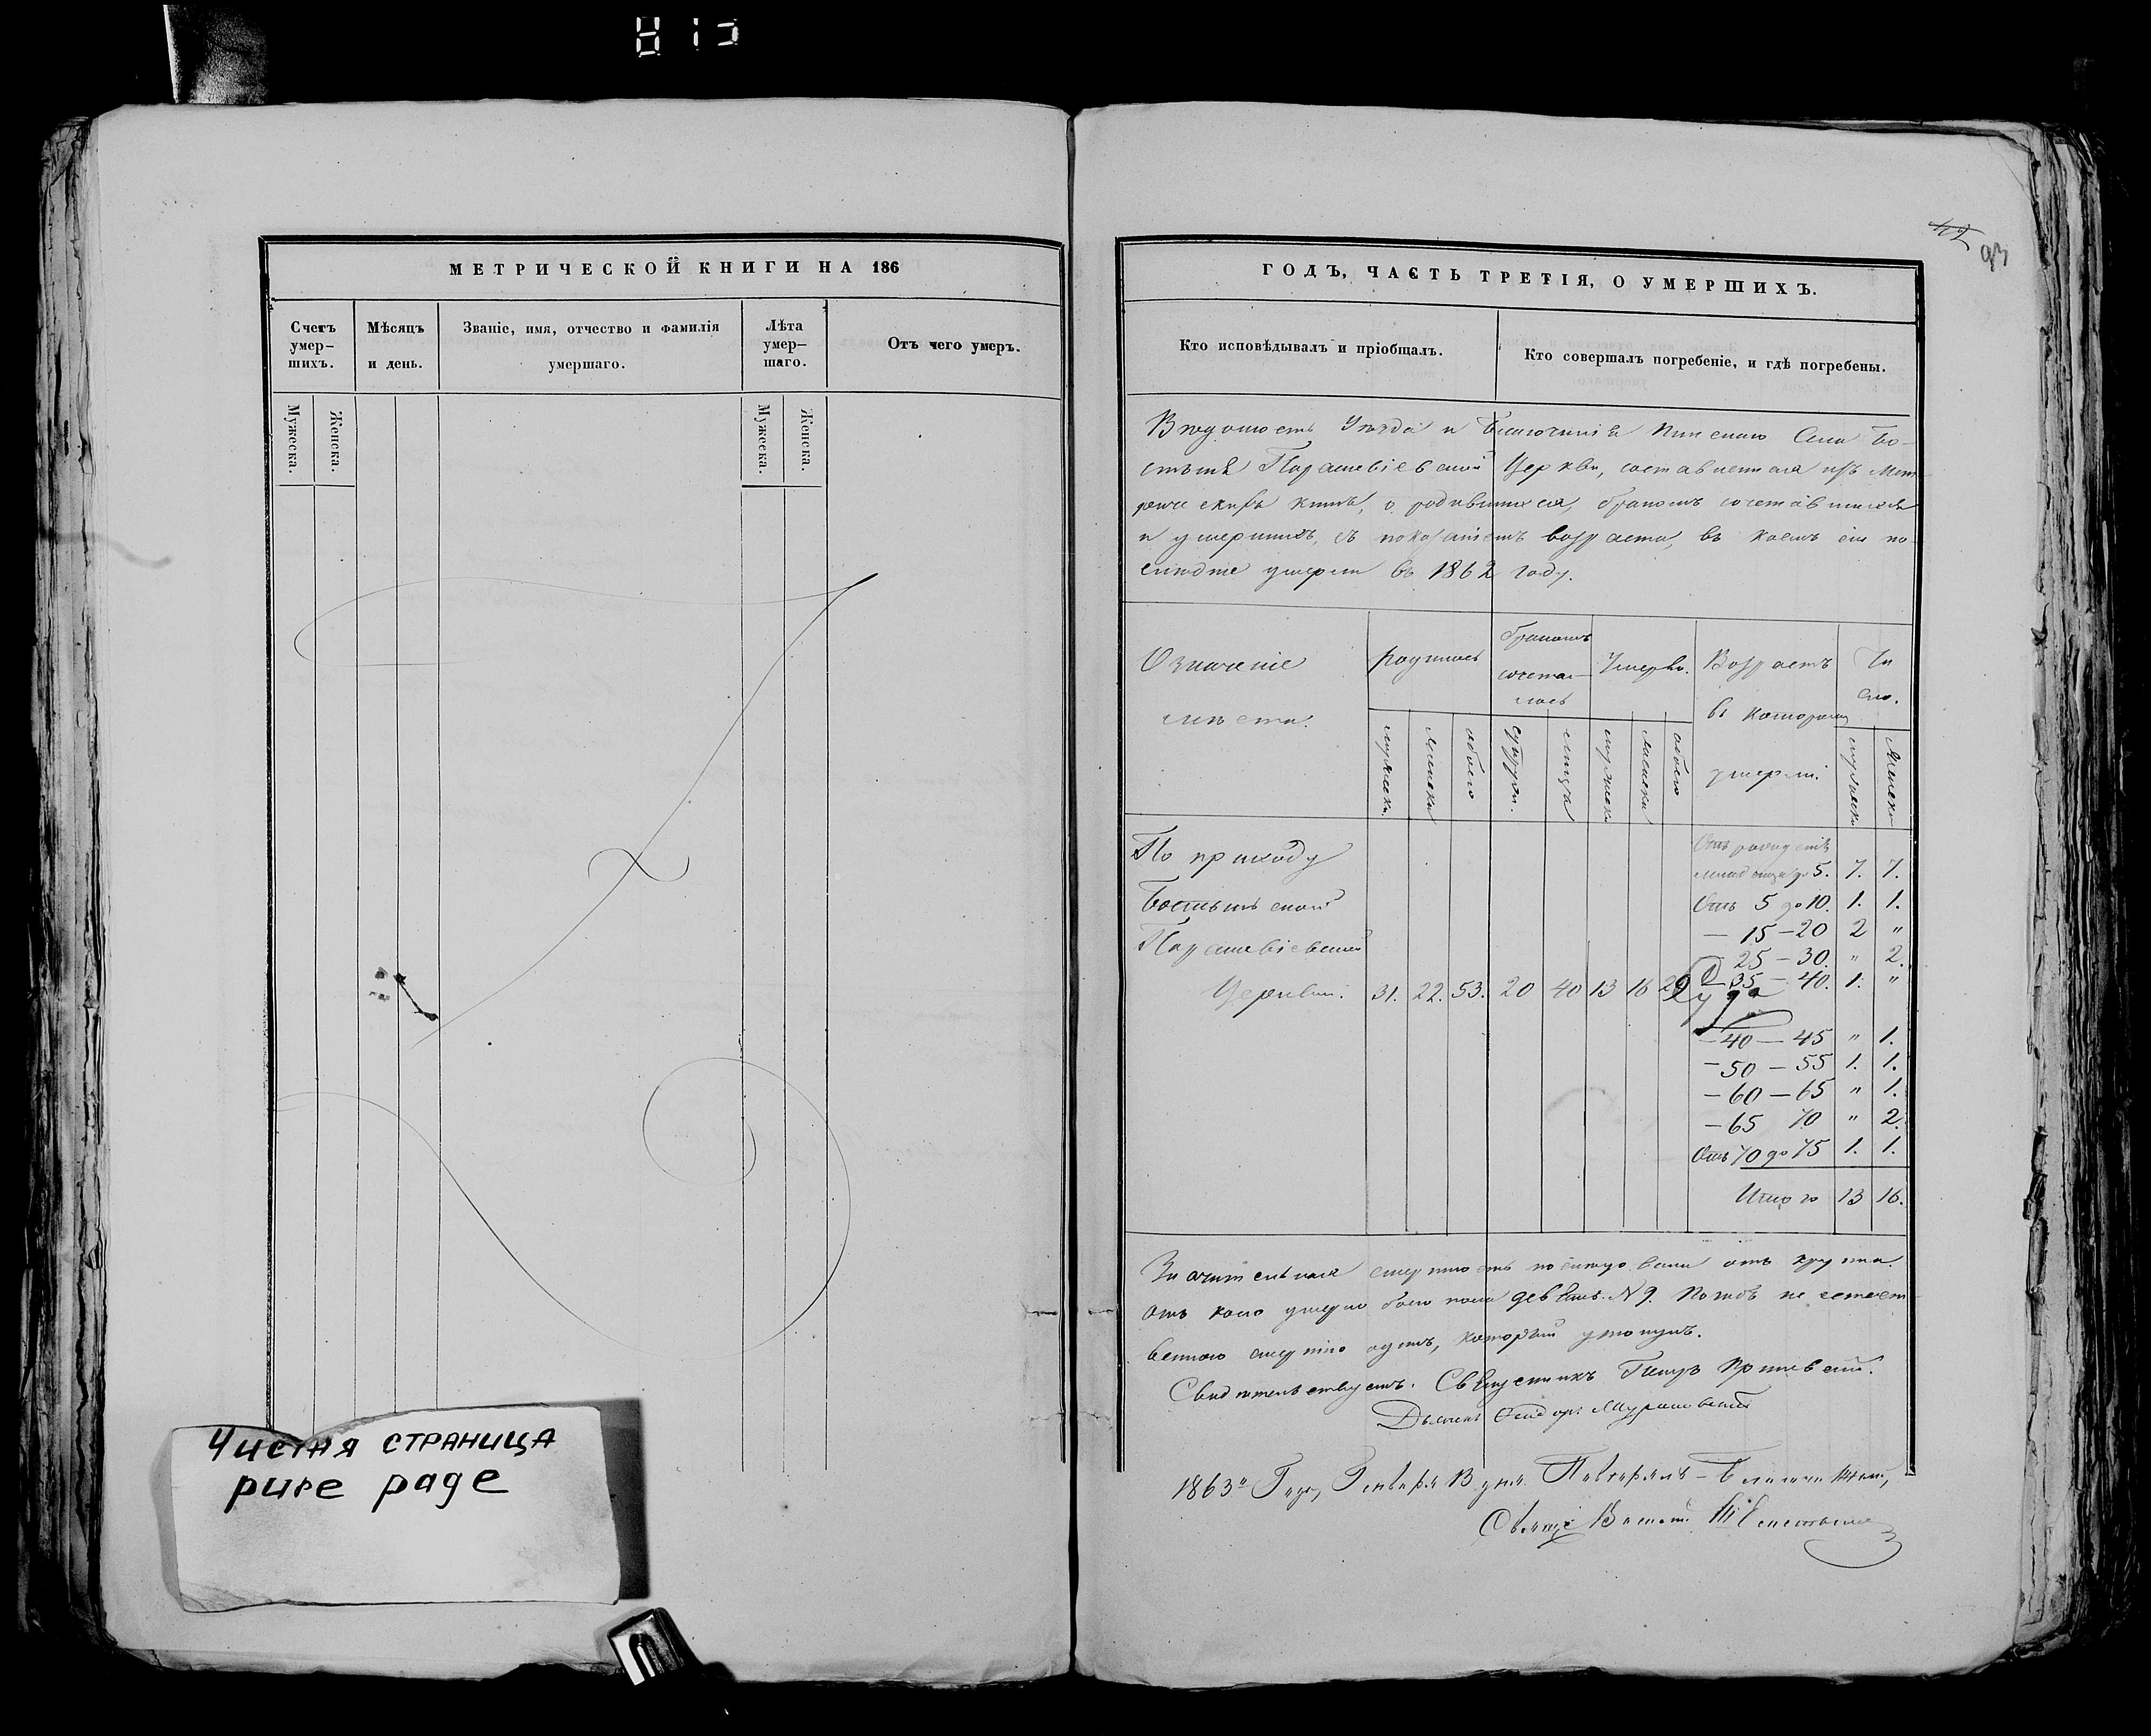 МЕТРИЧЕСКОЙ КНИГИ НА 186
Счетъ умер-шихъ.
Мѣсяцъ и день.
Званіе, имя, отчество и фамилія умершаго.
Лѣта умер-шаго.
Отъ чего умеръ.
Мужеска.
Женска.
Мужеска.
Женска.
Чистая страница
pure page
93
ГОДЪ, ЧАСТЬ ТРЕТІЯ, О УМЕРШИХЪ.
Кто исповѣдывалъ и пріобщалъ.
Кто совершалъ погребеніе, и гдѣ погребены.
Вѣдомость Уѣзда и Благочинія Села
Параскевіевской Церкви, составленная изъ Мет-
рическихъ книгъ, о родившихся, бракомъ сочетавшихся
и умершихъ, съ показаніемъ возраста, въ коемъ сіи по-
слѣдніе умерли въ 1862 году.
Означеніе мѣста.
родилось
бракомъ сочета-лось
Умерло.
Возрастъ въ которомъ умерли.
Чи сло.
мужеска
женска
обоего
супруж.
лица
мужеска
женска
обоего
мужеска
женска
По приходу
Параскевіевской
Церкви. 31. 22. 53. 20 40 13 16 29
Отъ рожденія
до 5. 7. 7.
Отъ 5 до 10. 1. 1.
— 15 — 20 2 "
25 — 30. " 2.
35 — 40. 1. "
— 40 — 45 " 1.
— 50 — 55 1. 1.
— 60 — 65 " 1.
— 65 70 " 2.
Отъ 70 до 75 1. 1.
Итого 13 16.
Значительная смертность послѣдовала отъ крупа.
Отъ коего умерло обоего пола девять. № 9. Потомъ не естест-
венною смертію одинъ, который утонулъ.
Свидѣтельствуемъ. Священникъ Петръ
Дьячекъ
1863го Года, Генваря дня Повѣрялъ Благочинный,
Свящ: